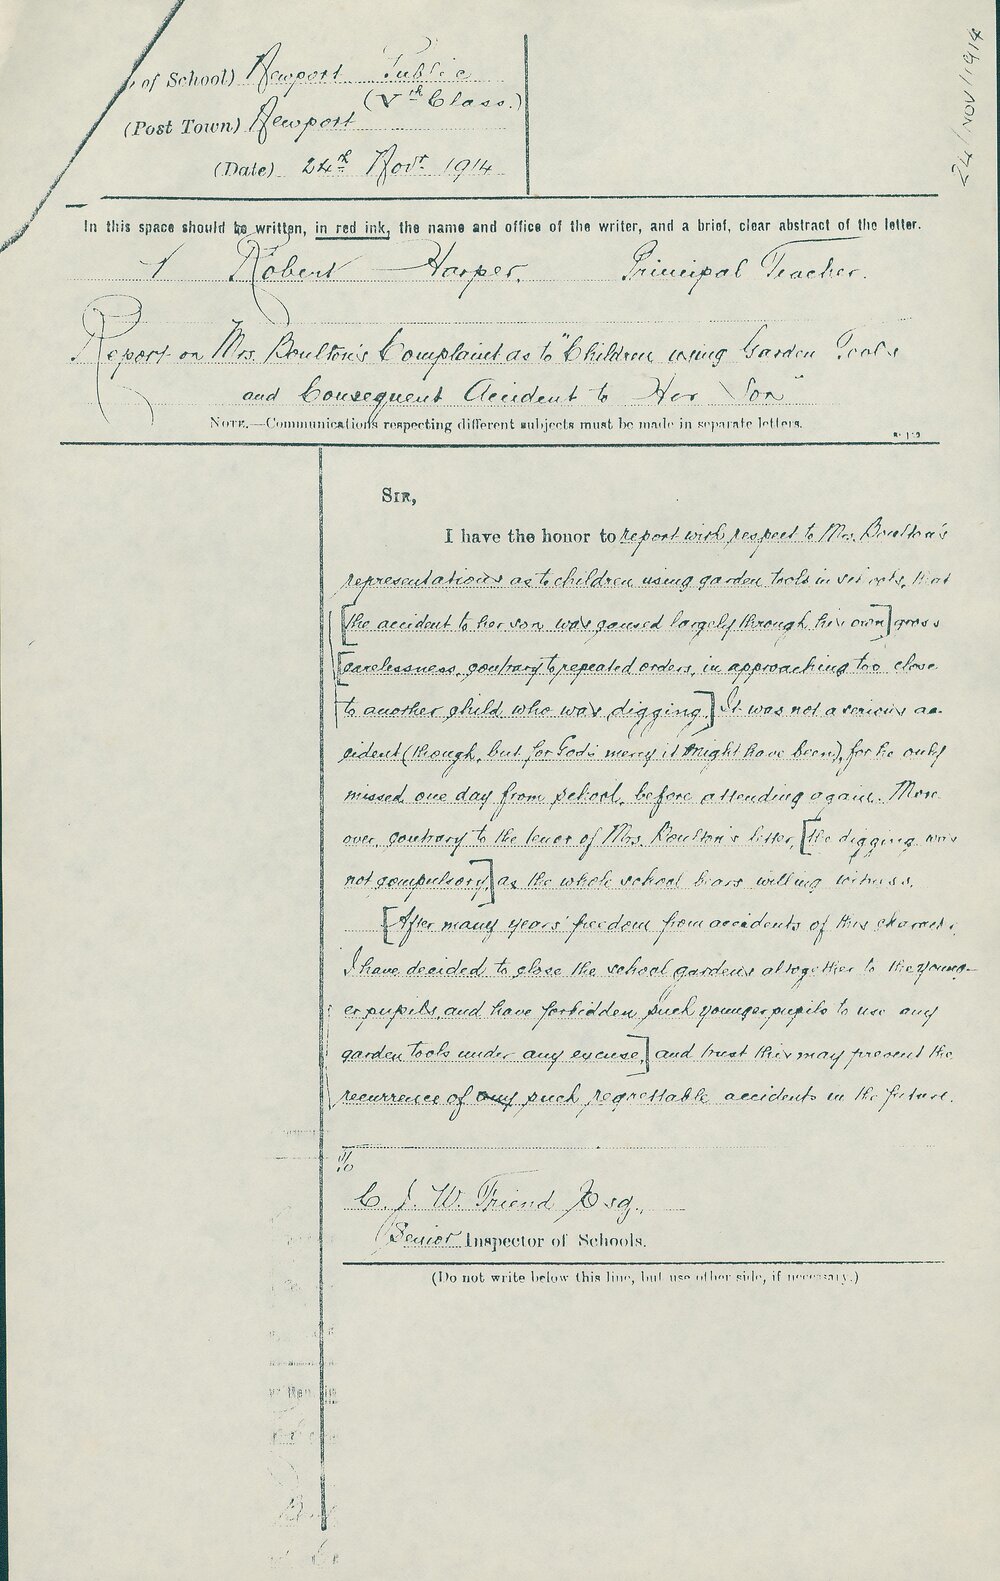 of School) Newport Public
(Vth Class.)
(Post Town) Newport
(Date) 24th Novr 1914
24/NOV/1914
In this space should be written, in red ink, the name and office of the writer, and a brief, clear abstract of the letter.
Robert Harper, Principal Teacher.
Report on Mrs. Boulton's Complaint as to "Children using Garden Tools
and Consequent Accident to Her Son"
NOTE.—Communications respecting different subjects must be made in separate letters.
SIR,
I have the honor to report with respect to Mrs. Boulton's
representations as to children using garden tools in schools, that
[the accident to her son was caused largely through his own] gross
[carelessness, contrary to repeated orders, in approaching too close
to another child who was digging.] It was not a serious ac-
cident (though, but for God's mercy it might have been), for he only
missed one day from school, before attending again. More
over, contrary to the tenor of Mrs. Boulton's letter, [the digging was
not compulsory,] as the whole school bears willing witness.
[After many years' freedom from accidents of this character,
I have decided to close the school gardens altogether to the young-
er pupils, and have forbidden such younger pupils to use any
garden tools under any excuse,] and trust this may prevent the
recurrence of any such regrettable accidents in the future.
To
C. J. W. Friend Esq.,
Senior Inspector of Schools.
(Do not write below this line, but use other side, if necessary.)